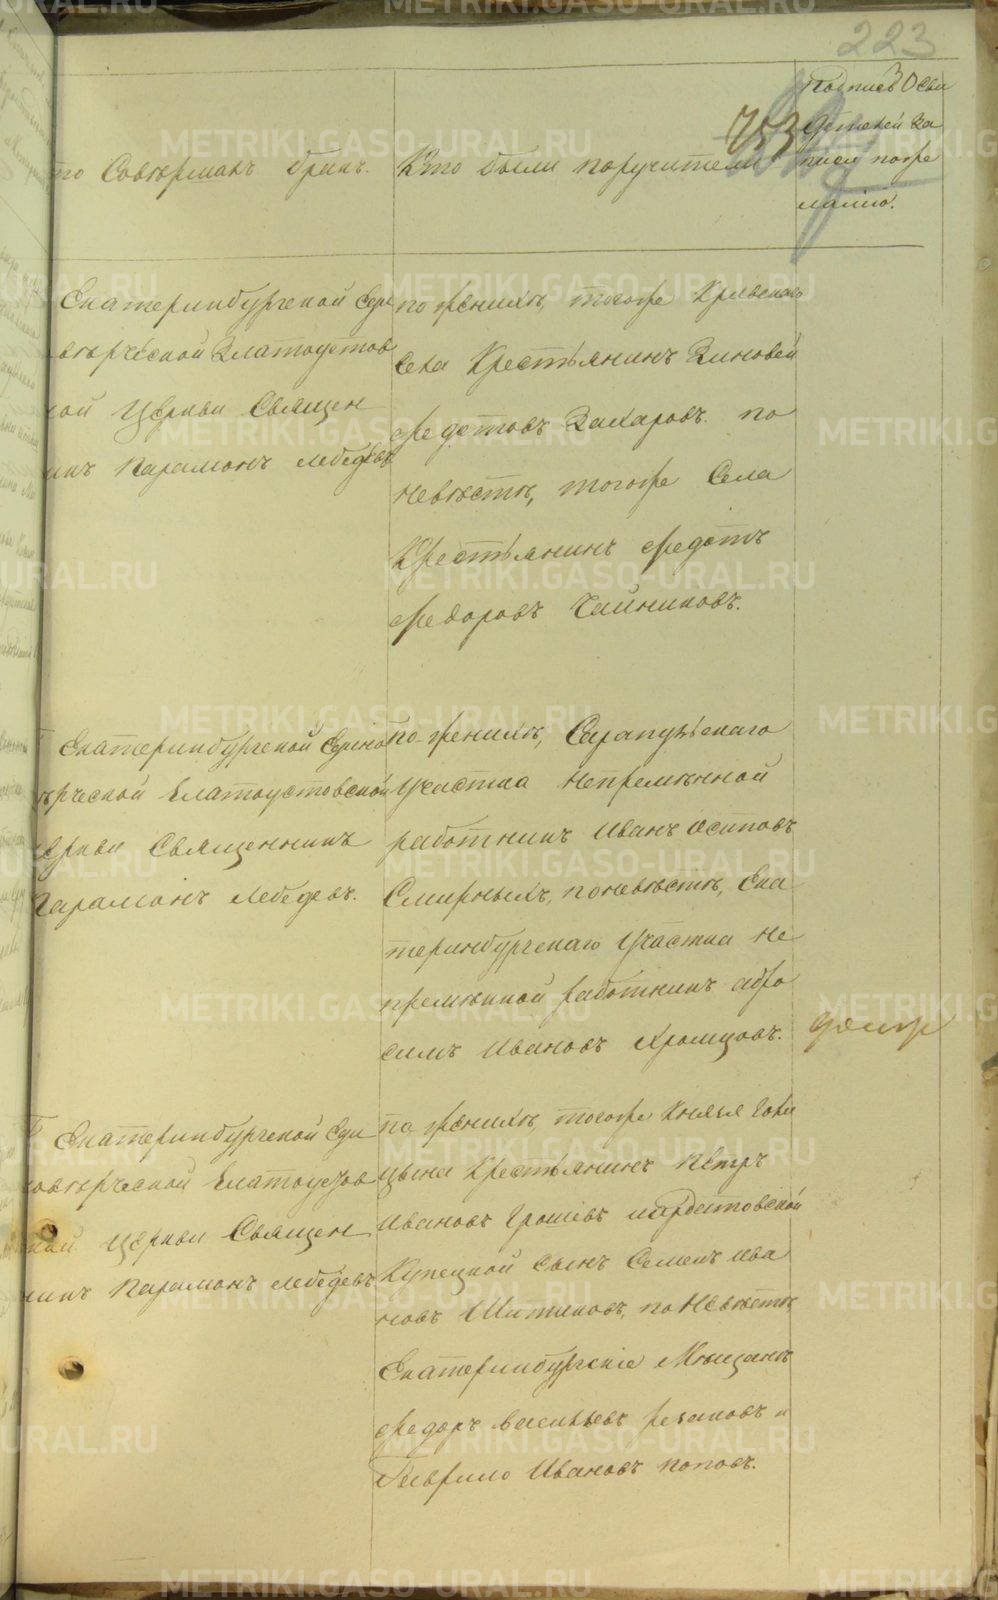 223
Кто Совершалъ бракъ.
Кто были поручители
Подпись Сви
дѣтелей за
писи по же
ланію.
Екатеринбургской Еди
новѣрческой Златоустов
ской Церкви Священ
никъ Парамонъ Лебедевъ
по женихѣ, тогоже
Села Крестьянинъ Зиновей
Федотовъ Захаровъ. по
невѣстѣ, тогоже Села
Крестьянинъ Федотъ
Федоровъ Чайниковъ.
Екатеринбургской Едино
вѣрческой Златоустовской
Церкви Священникъ
Парамонъ Лебедевъ.
по женихѣ, Сарапульскаго
Участка Непремѣнной
работникъ Иванъ Осиповъ
Смирныхъ, по невѣстѣ, Ека
теринбургскаго Участка Не
премѣнной работникъ Абро
симъ Ивановъ Хромцовъ.
Екатеринбургской Еди
новѣрческой Златоустов
ской Церкви Священ
никъ Парамонъ Лебедевъ
по женихѣ, тогоже Князя Голи
цына Крестьянинъ Петръ
Ивановъ
Купецкой сынъ Семенъ Ива
новъ по Невѣстѣ,
Екатеринбургскіе Мѣщанѣ
Федоръ Васильевъ Резановъ и
Гаврило Ивановъ Поповъ.
METRIKI.GASO-URAL.RU